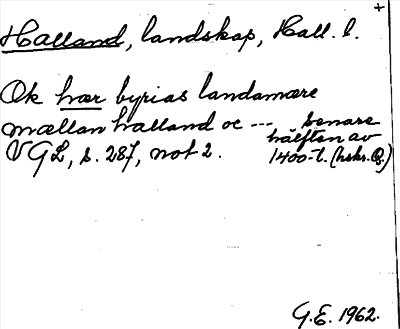 +
Halland, landskap, Hall. l.
Ok hær byrias landamære
mællan halland oc --- senare
hälften av
VGL, s. 287, not 2. 1400-t. (hskr. B.)
G.E. 1962.